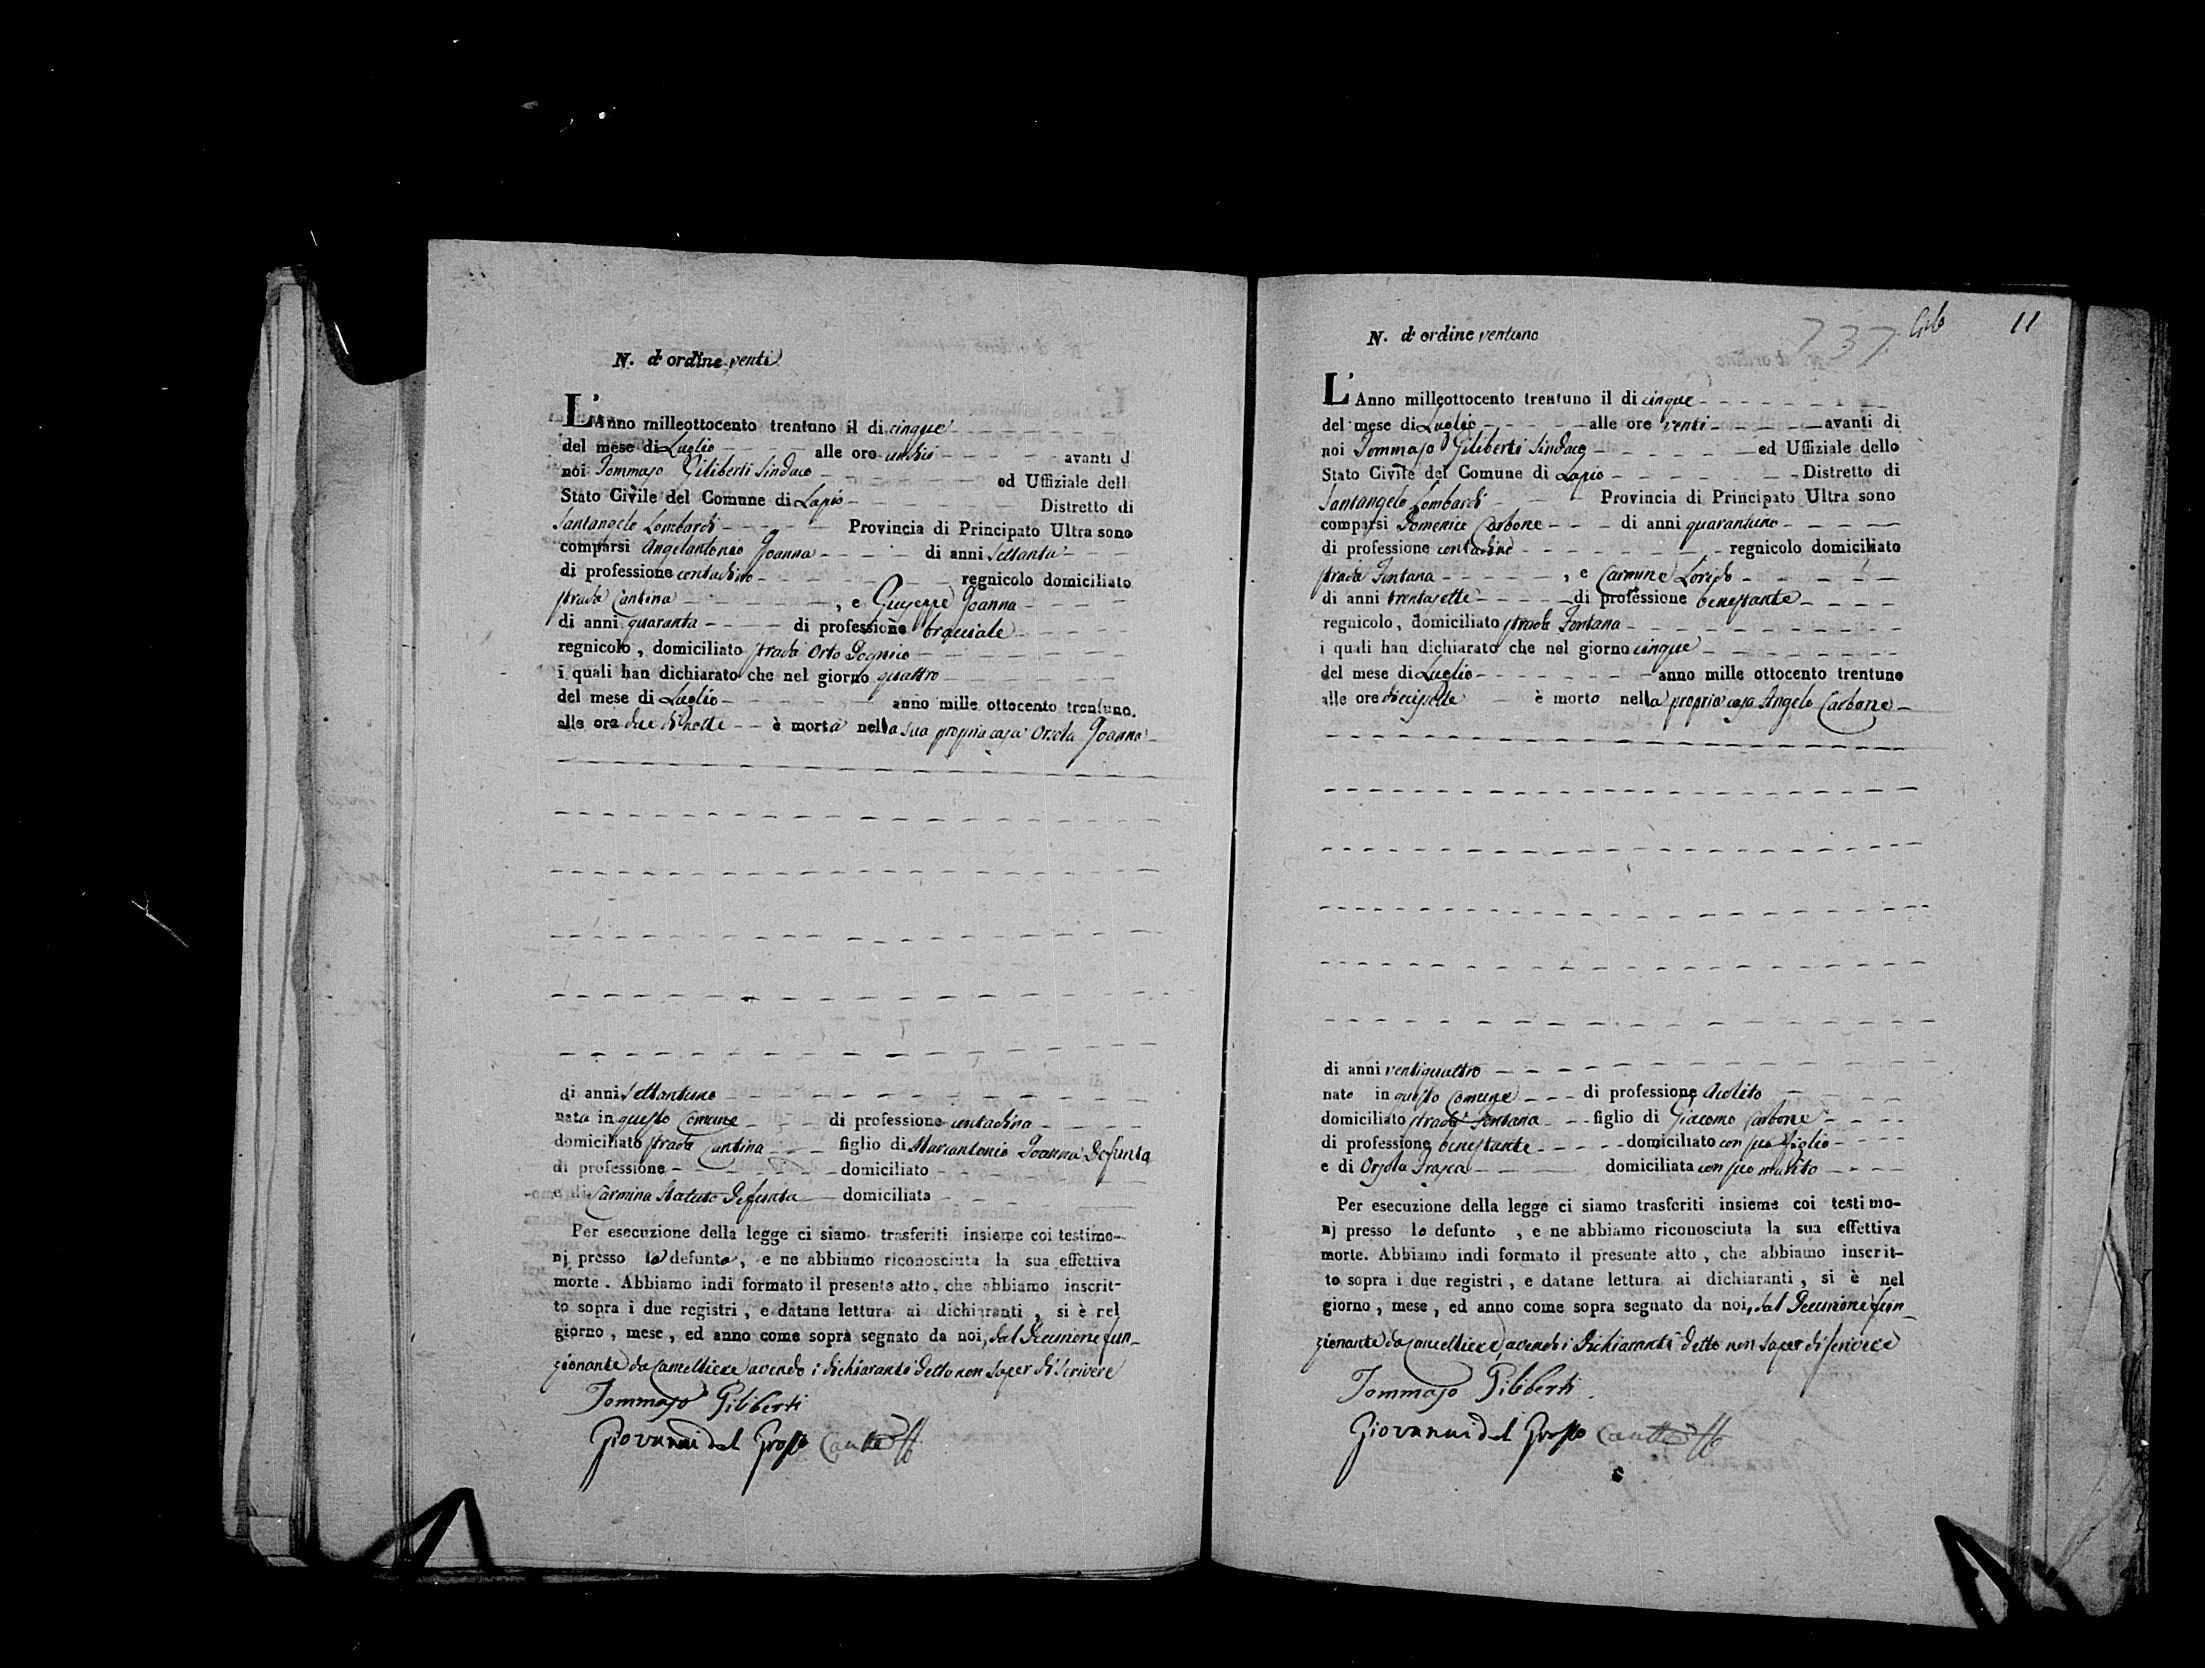 N. d' ordine venti
L'Anno milleottocento trentuno il di cinque
del mese di Luglio alle ore undici avanti d
noi Tommaso Giliberti Sindaco ed Uffiziale dell
Stato Civile del Comune di Lapio Distretto di
Santangelo Lombardi Provincia di Principato Ultra sono
comparsi Angelantonio Joanna di anni settanta
di professione contadino regnicolo domiciliato
strada Cantina , e Giuseppe Joanna
di anni quaranta di professione bracciale
regnicolo, domiciliato strada Orto
i quali han dichiarato che nel giorno quattro
del mese di Luglio anno mille ottocento trentuno.
alle ore due di notte è morta nella sua propria casa Orsola Joanna
di anni settantuno
nata in questo Comune di professione contadina
domiciliato strada Cantina figlio di Marcantonio Joanna Defunto
di professione domiciliato
e di Carmina Defunta domiciliata
Per esecuzione della legge ci siamo trasferiti insieme coi testimo-
nj presso la defunta, e ne abbiamo riconosciuta la sua effettiva
morte. Abbiamo indi formato il presente atto, che abbiamo inscrit-
to sopra i due registri, e datane lettura ai dichiaranti, si è nel
giorno, mese, ed anno come sopra segnato da noi, dal Decurione fun-
zionante da Cancelliere avendo i dichiaranti detto non saper di scrivere
Tommaso Giliberti
Giovanni del Grosso
737 11
N. d' ordine ventuno
L'Anno milleottocento trentuno il di cinque
del mese di Luglio alle ore venti avanti di
noi Tommaso Giliberti Sindaco ed Uffiziale dello
Stato Civile del Comune di Lapio Distretto di
Santangelo Lombardi Provincia di Principato Ultra sono
comparsi Domenico Carbone di anni quarantuno
di professione contadino regnicolo domiciliato
strada Fontana , e Carmine
di anni trentasette di professione benestante
regnicolo, domiciliato strada Fontana
i quali han dichiarato che nel giorno cinque
del mese di Luglio anno mille ottocento trentuno
alle ore diecisette è morto nella propria casa Angelo Carbone
di anni ventiquattro
nato in questo Comune di professione
domiciliato strada Fontana figlio di Giacomo Carbone
di professione benestante domiciliato con suo figlio
e di Orsola Frasca domiciliata con suo marito
Per esecuzione della legge ci siamo trasferiti insieme coi testimo-
nj presso lo defunto , e ne abbiamo riconosciuta la sua effettiva
morte. Abbiamo indi formato il presente atto, che abbiamo inscrit-
to sopra i due registri, e datane lettura ai dichiaranti, si è nel
giorno, mese, ed anno come sopra segnato da noi, dal Decurione fun-
zionante da Cancelliere avendo i dichiaranti detto non saper di scrivere
Tommaso Giliberti
Giovanni del Grosso